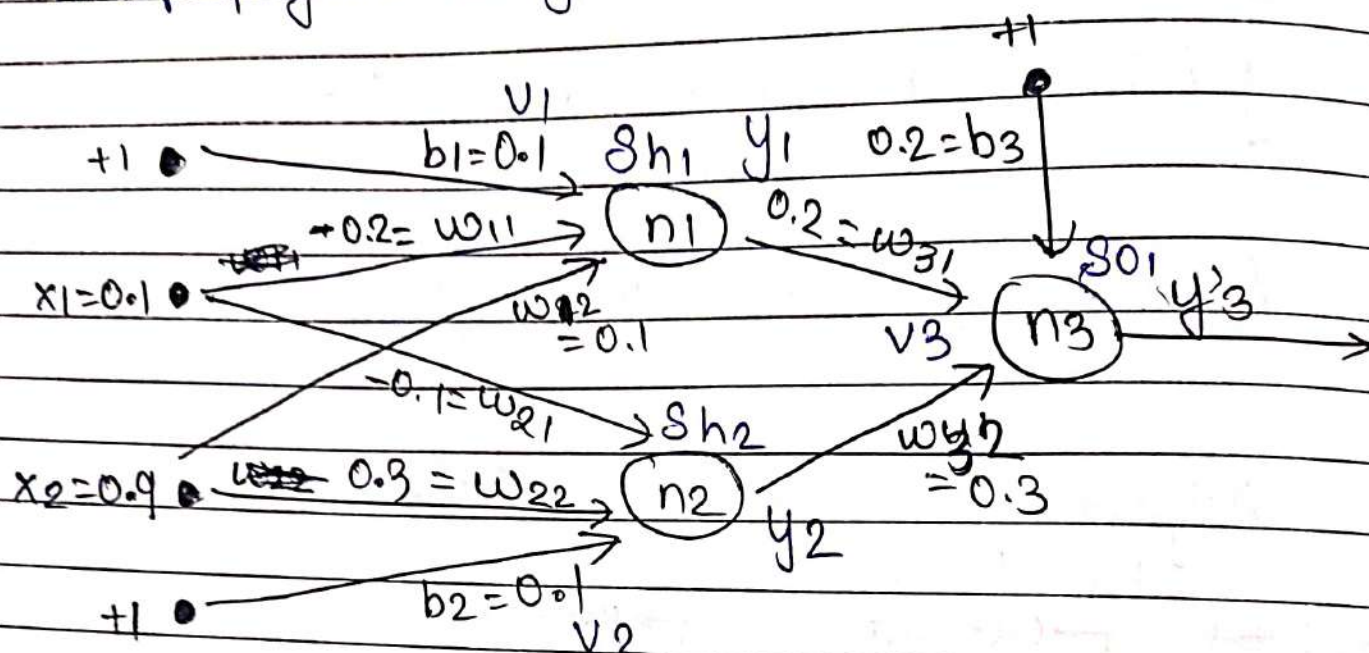 +1
V1
+1 b1=0.1 Sh1 y1 0.2=b3
-0.2= w11 n1 0.2=w31
x1=0.1 w12 =0.1 V3 n3 S01 y'3
-0.1=w21 Sh2
x2=0.9 0.3 = w22 n2 = 0.3
y2
+1 b2=0.1
V2